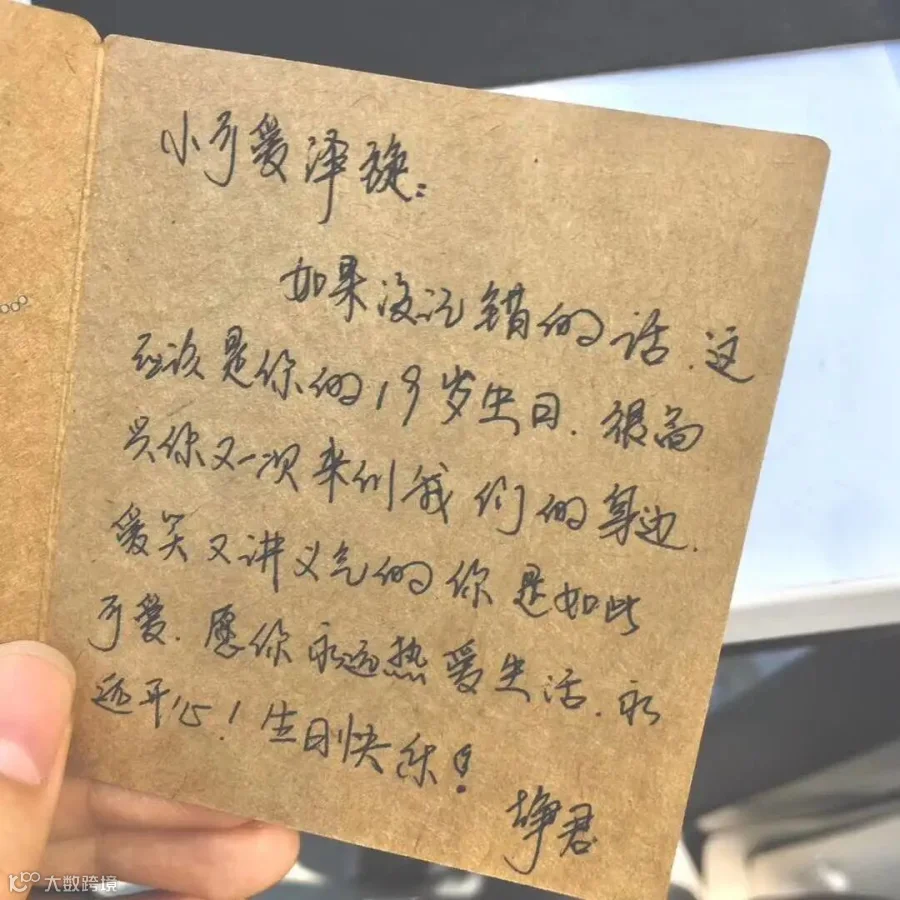 小可爱泽璇：
如果没记错的话，这
应该是你的19岁生日，很高
兴你又一次来们我们的身边，
爱笑又讲义气的你是如此
可爱，愿你永远热爱生活，永
远开心！生日快乐！
君
大数跨境